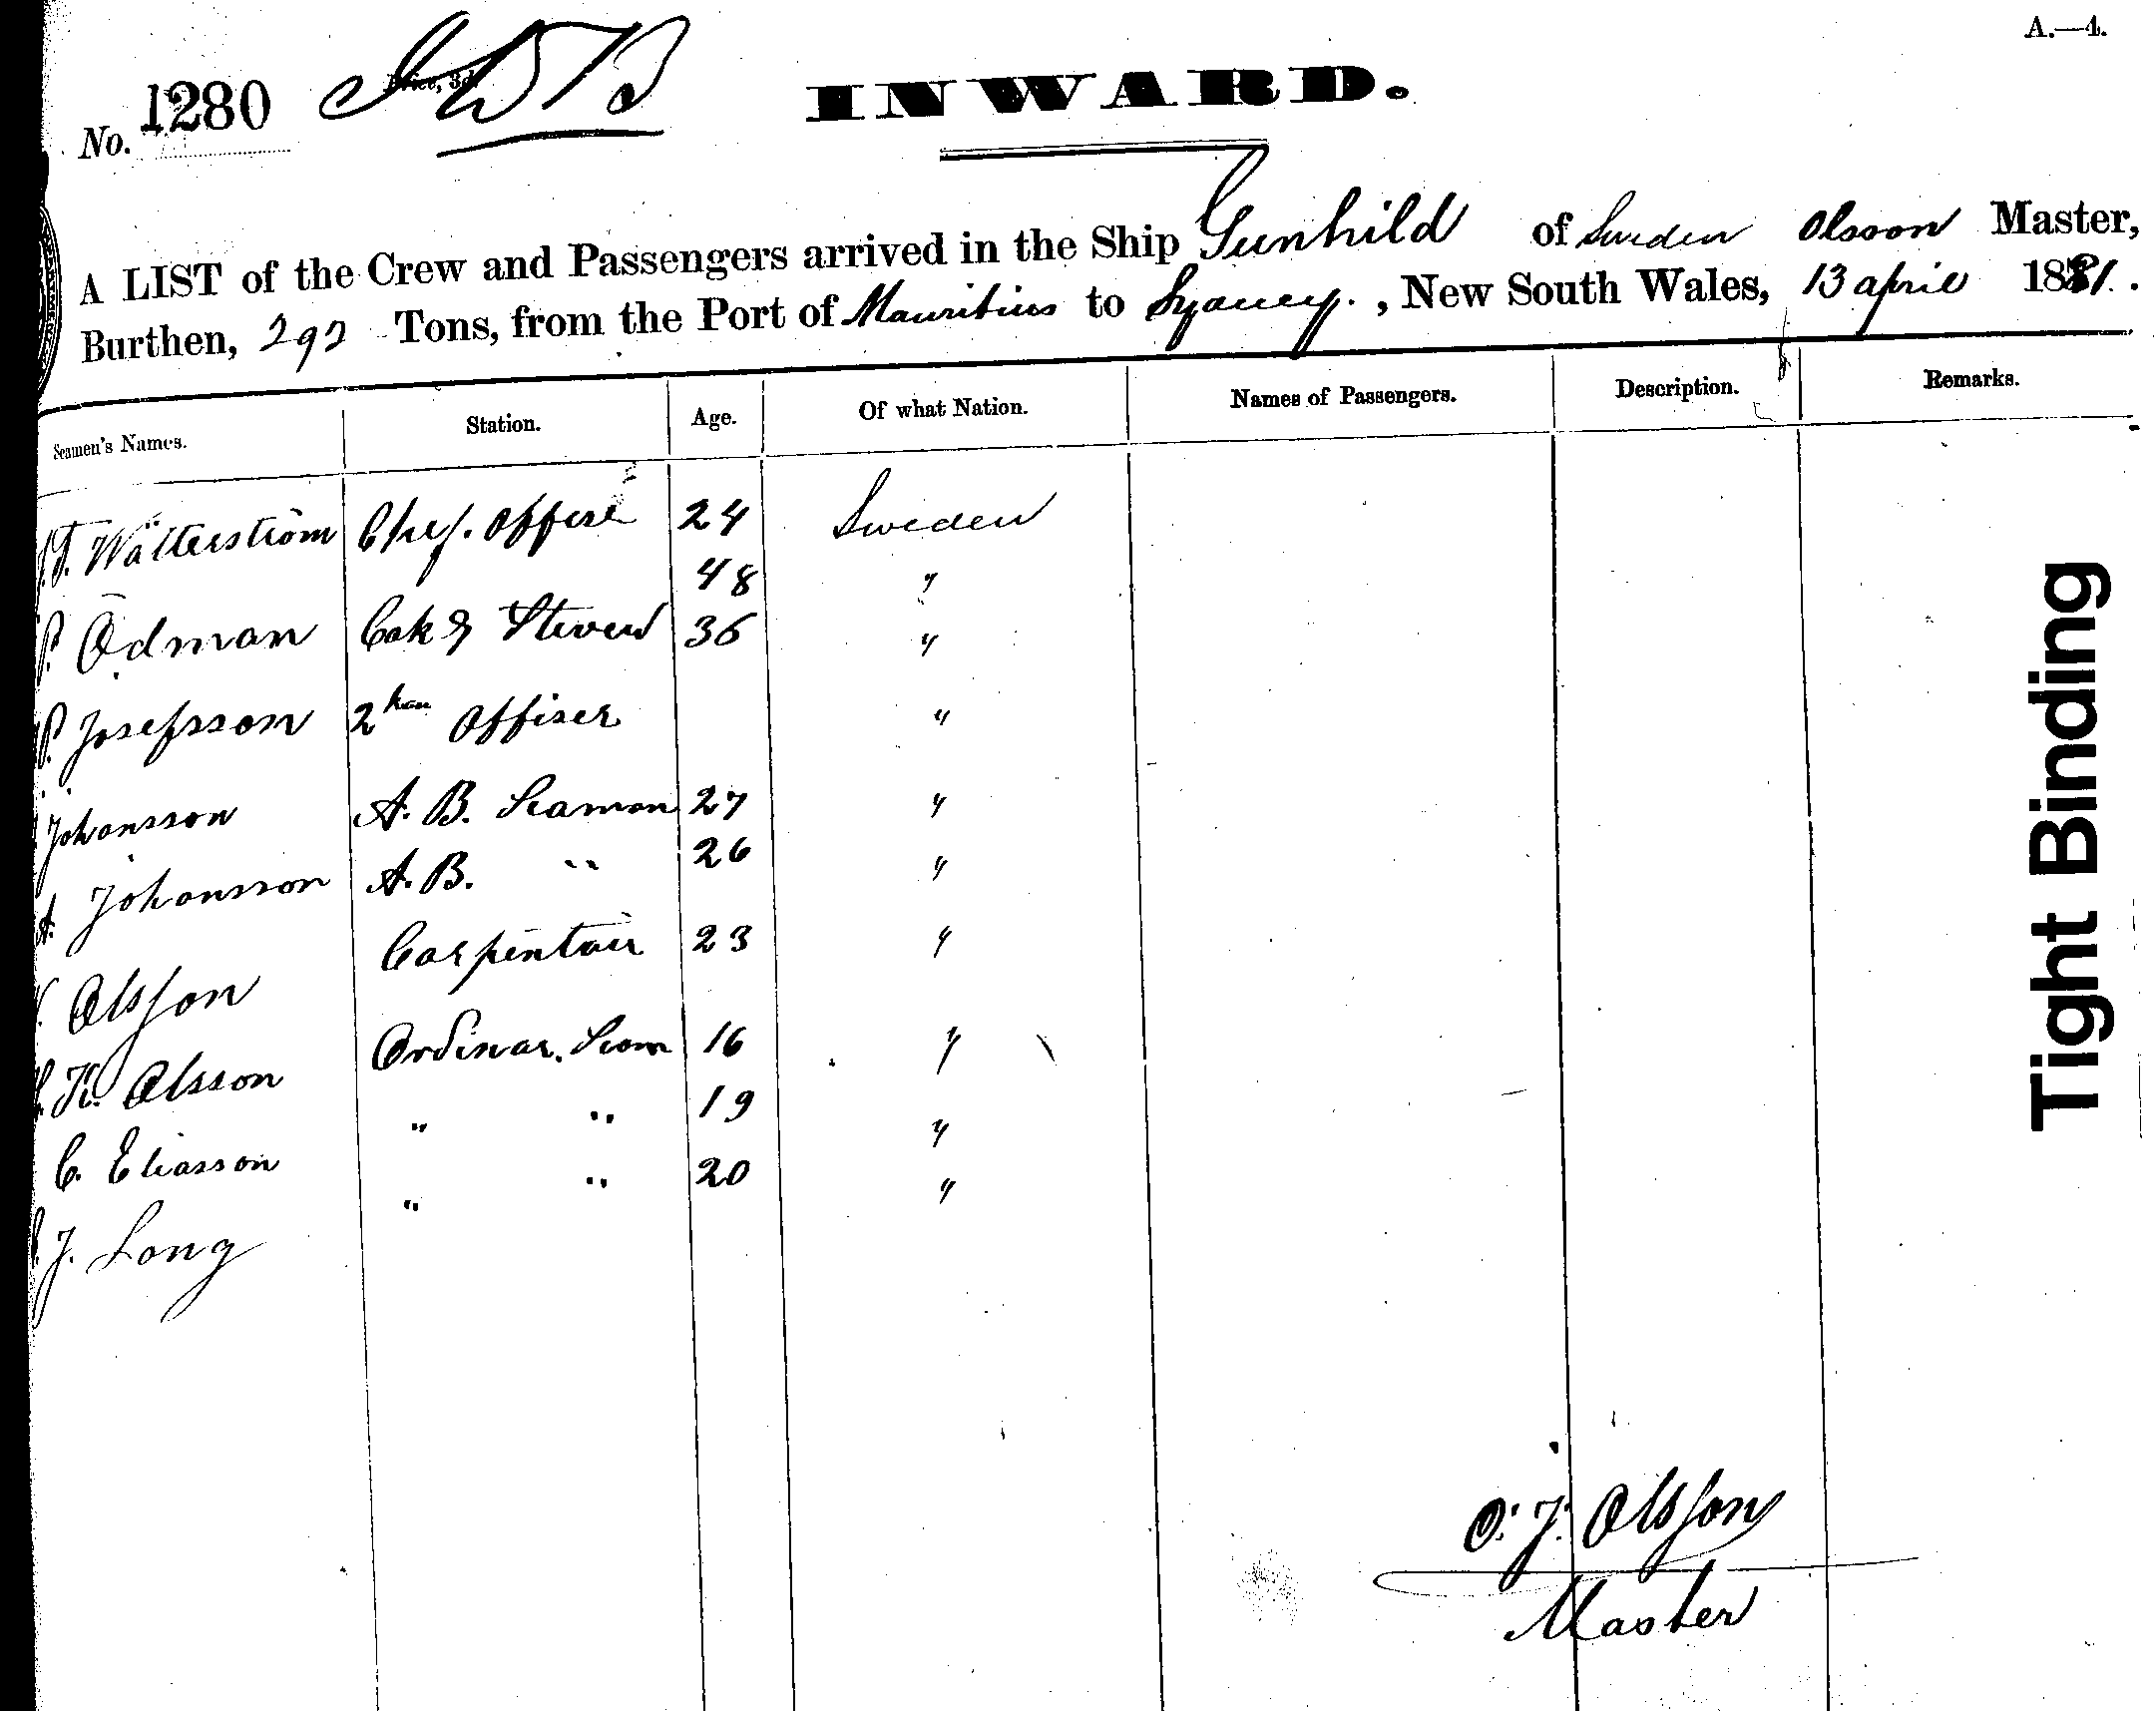 A.—4.
No. 1280
Price, 3d.
INWARD.
A LIST of the Crew and Passengers arrived in the Ship Gunhild of Sweden Olsson Master,
Burthen, 292 Tons, from the Port of Mauritius to Sydney. , New South Wales, 13 april 1881.
Seamen's Names. Station. Age. Of what Nation. Names of Passengers. Description. Remarks.
Wätterström Chef. Offiser 24 Sweden
48 "
P. Ödman Cok & Steverd 36 "
P. Josefsson 2 Offiser "
Johansson A. B. Seaman 27 "
A. Johansson A. B. " 26 "
Olsson Carpentair 23 "
K. Olsson Ordinar. Seam 16 "
C. Eliasson " " 19 "
J. Long " " 20 "
O. J. Olsson
Master
Tight Binding